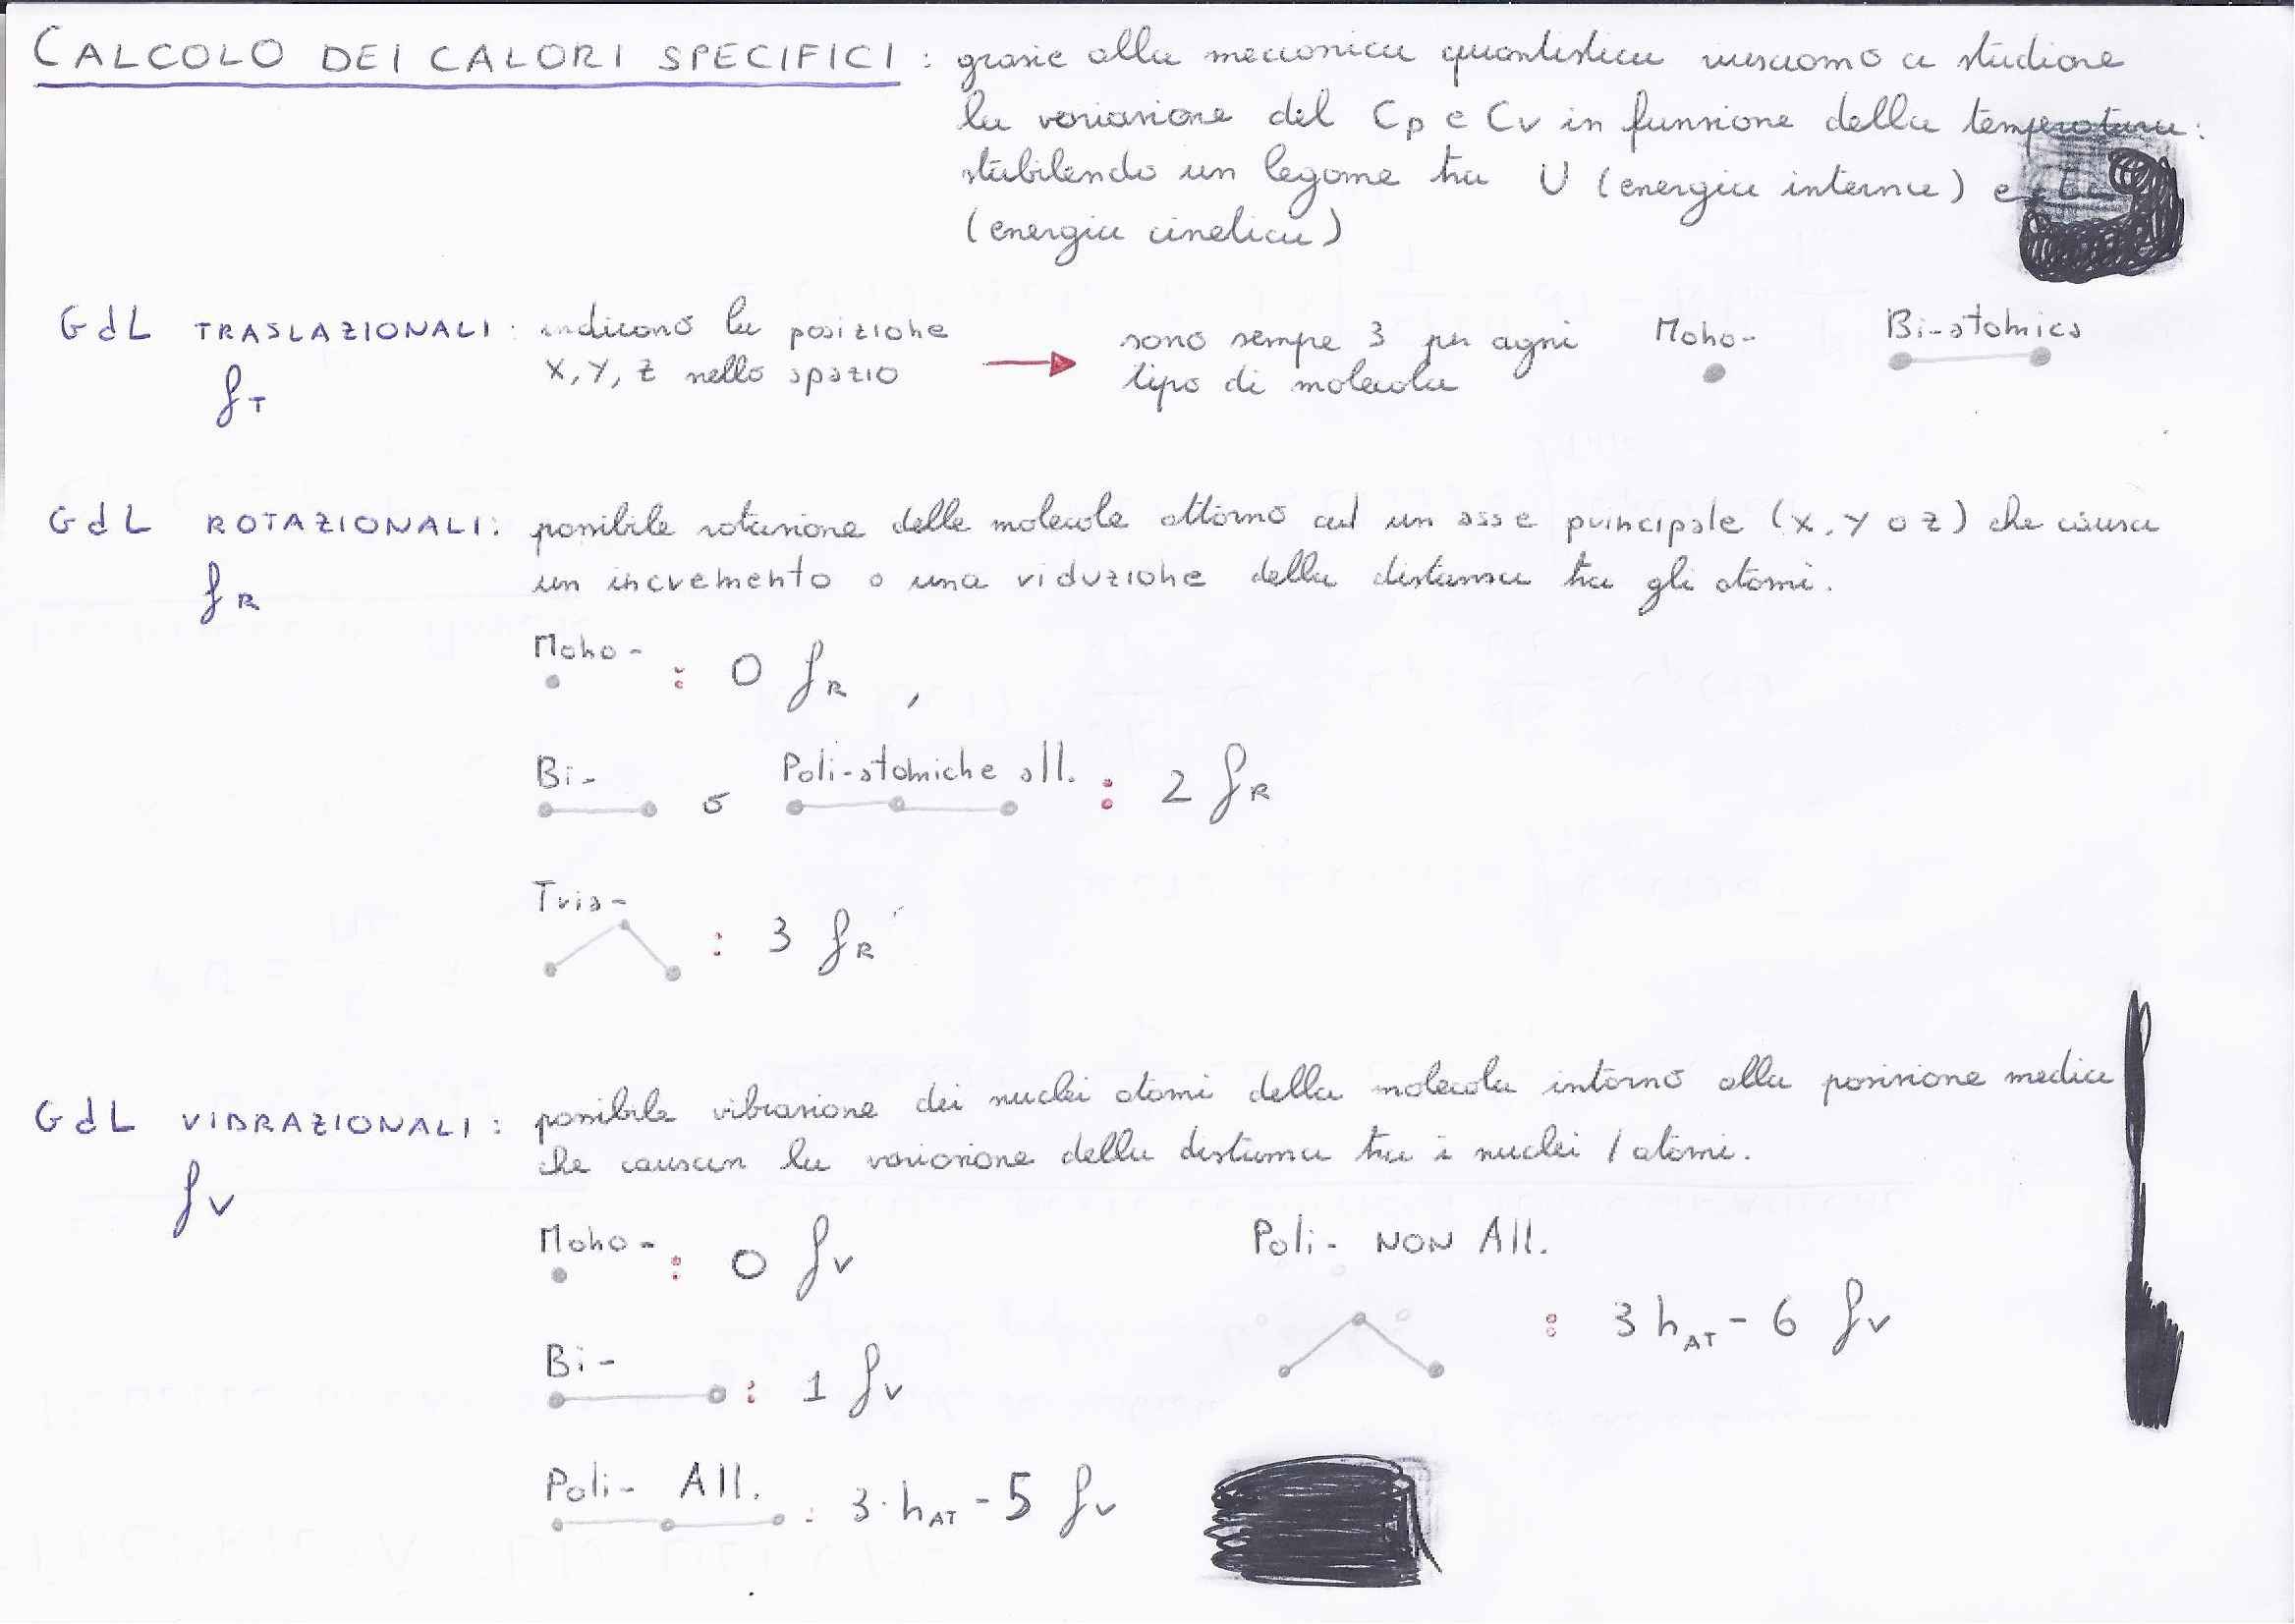 CALCOLO DEI CALORI SPECIFICI : grazie alla meccanica quantistica riusciamo a studiare
la variazione del Cp e Cv in funzione della temperatura:
stabilendo un legame tra U (energia interna) e
(energia cinetica)
GdL TRASLAZIONALI : indicano la posizione
X, Y, Z nello spazio
fT
sono sempre 3 per ogni
tipo di molecola
Mono-
Bi-atomica
GdL ROTAZIONALI : possibile rotazione delle molecole attorno ad un asse principale (X, Y o Z) che causa
fR
un incremento o una riduzione della distanza tra gli atomi.
Mono- : 0 fR ,
Bi- o Poli-atomiche all. : 2 fR
Tria- : 3 fR
GdL VIBRAZIONALI : possibile vibrazione dei nuclei atomi della molecola intorno alla posizione media
fV
che causan la variazione della distanza tra i nuclei / atomi.
Mono- : 0 fV
Poli- NON All. : 3 nAT - 6 fV
Bi- : 1 fV
Poli- All. : 3·nAT - 5 fV